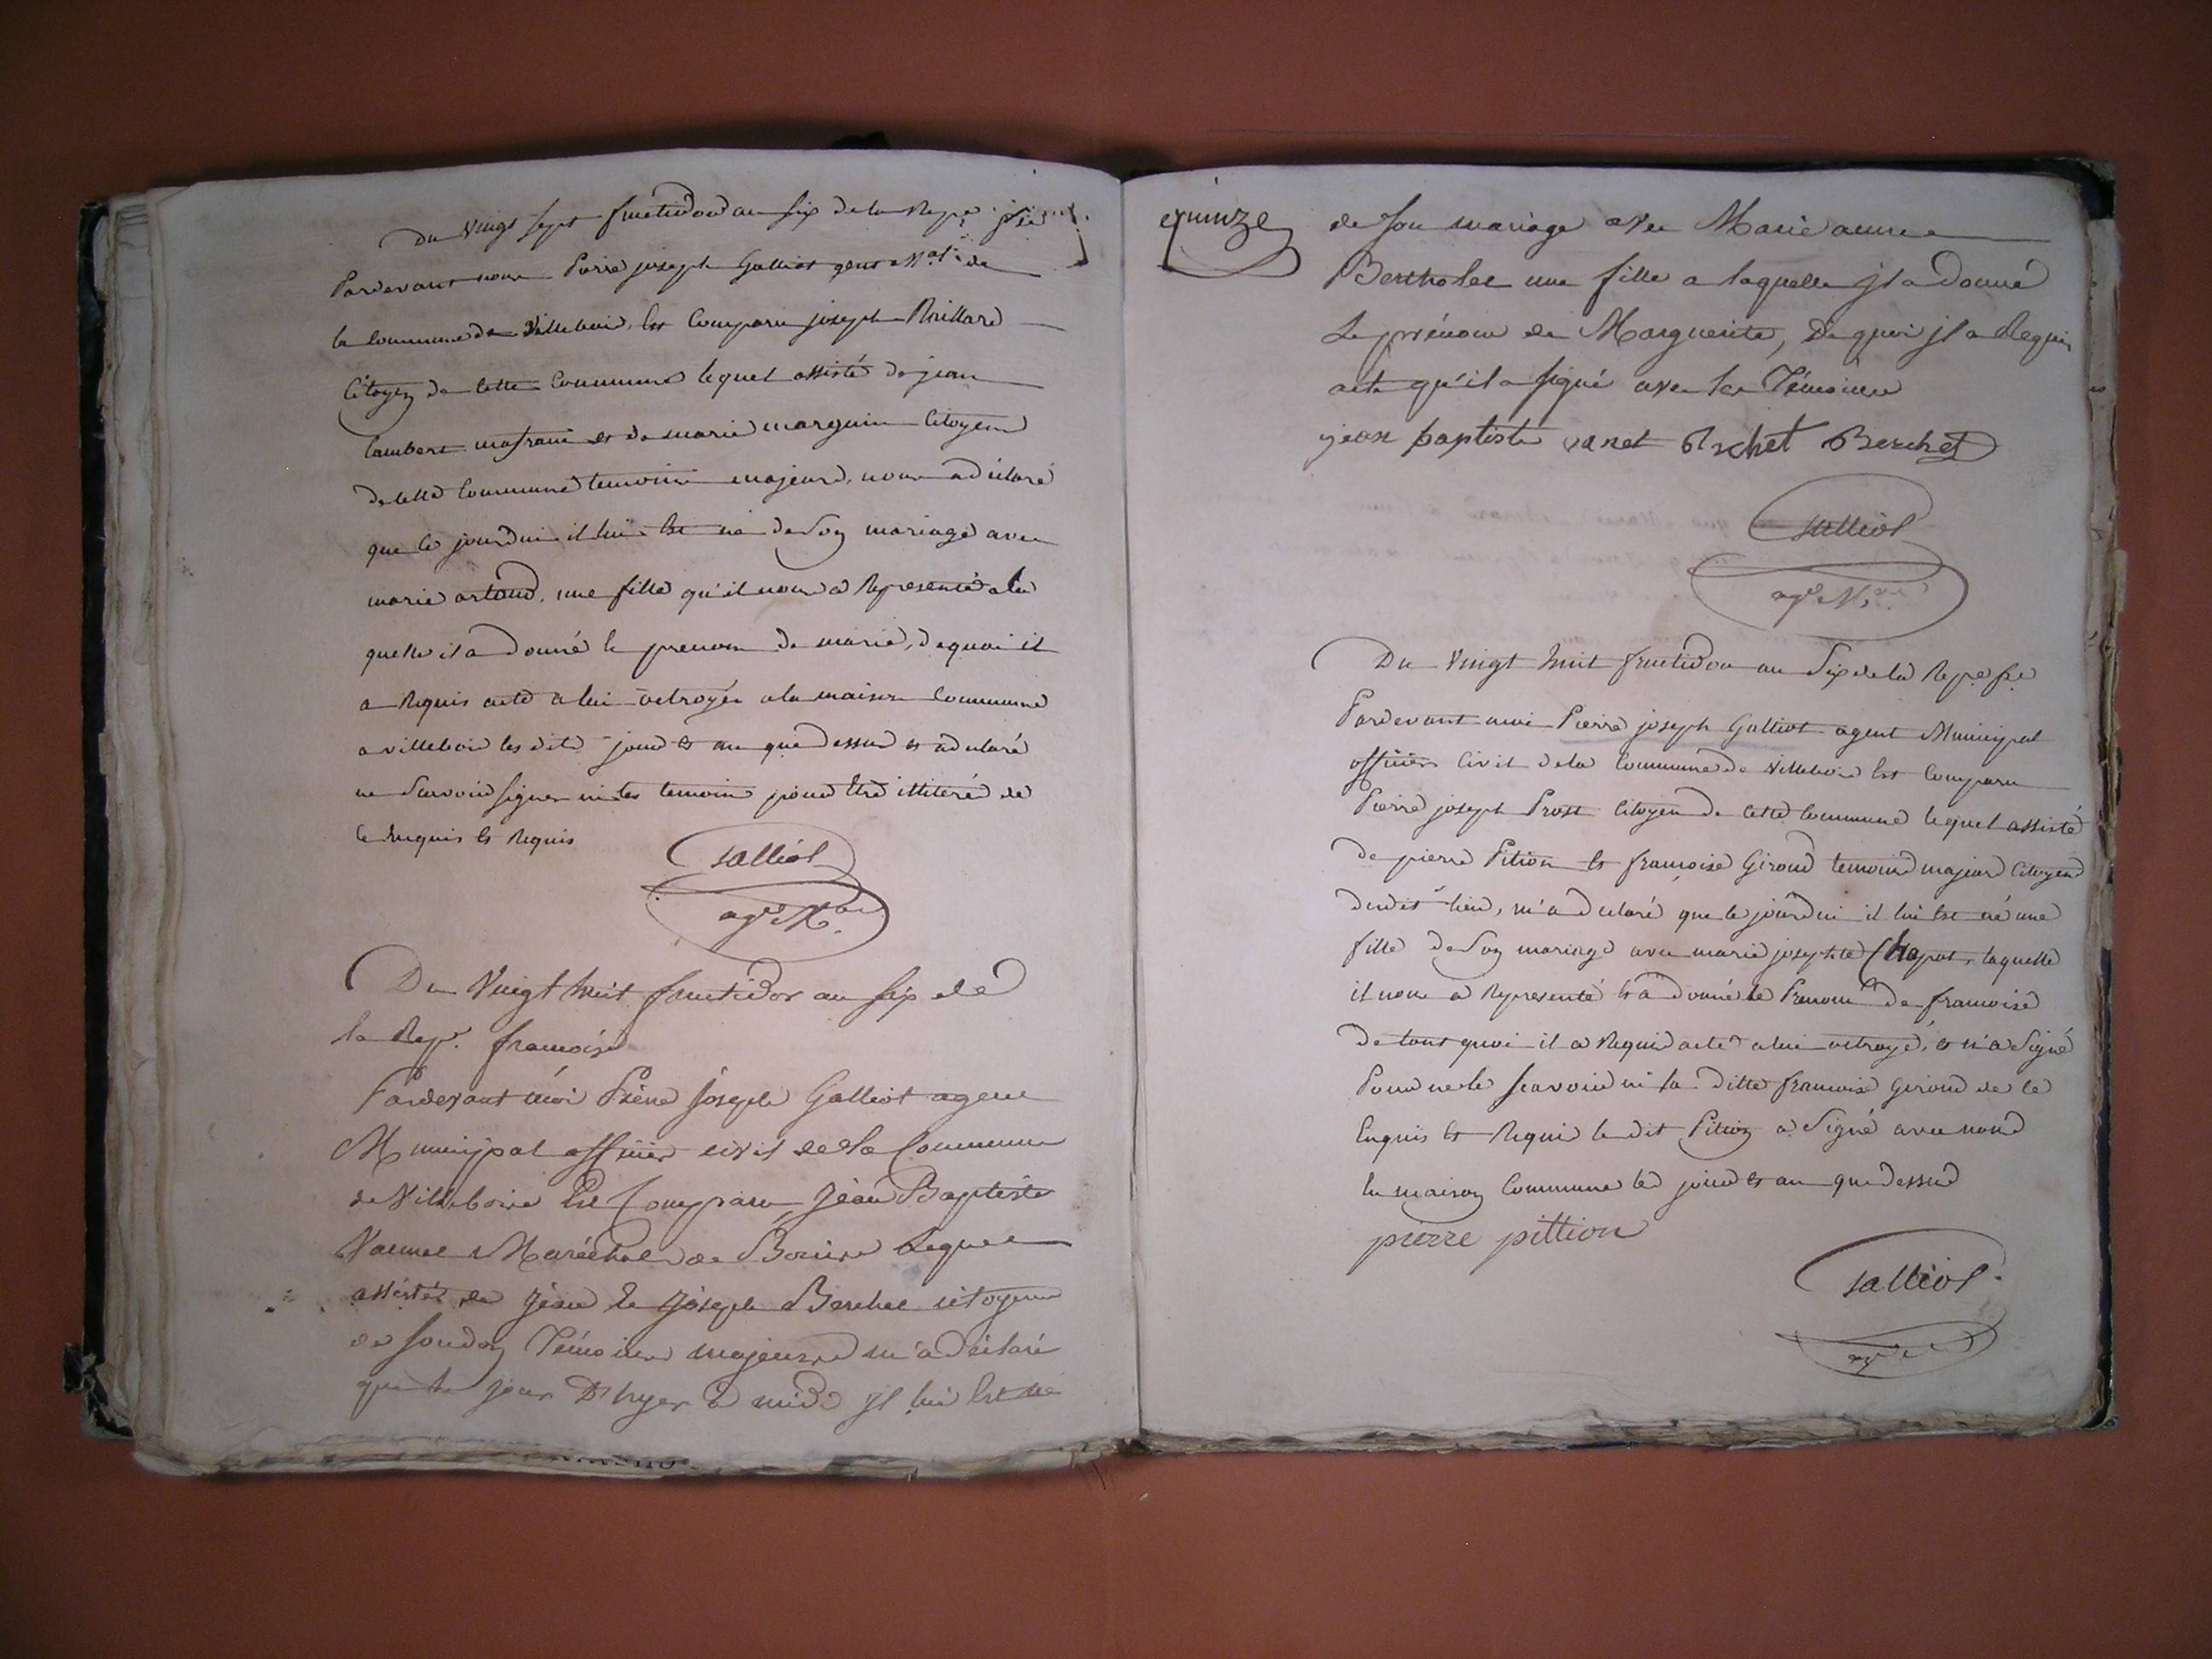 Du vingt sept fructidor an six de la Repe
Pardevant nous Pierre joseph Galliot agent Mal de
la commune de Villebois, Est Comparu joseph
Citoyen de cette Commune lequel assisté de jean
Lambert et de marie marguin Citoyens
de cette Commune temoins majeurs, nous a déclaré
que ce jourdui il lui Est né de Son mariage avec
marie artoud, une fille qu'il nous a Representé a la
quelle il a donné le prenom de marie, de quoi il
a Requis acte a lui octroyée a la maison Commune
a villebois les dits jour et an que dessus et a declaré
ne Savoir signer ni les temoins pour Etre illiteré de
ce Enquis et Requis
Galliot
agt Mal
Du Vingt huit fructidor an six de
la Rep. françoise
Pardevant moi Pierre Joseph Galliot agent
Municipal officier civil de la Commune
de Villebois Est Comparu Jean Baptiste
Vannet Maréchal de Bouis Lequel
assistés de Jean Et Joseph Berchet citoyens
de Soudon Témoins majeurs m'a déclaré
que le jour D'hyer a midi jl lui Est né
quinze
de son mariage avec Marie anne
Bertholet une fille a laquelle jl a Donné
Le prénom de Marguerite, De quoi jl a Requis
acte qu'il a signé avec les Témoins
jean baptiste vanet Berchet
Galliot
agt Mal
Du Vingt huit fructidor an Six de la Repe fse
Pardevant moi Pierre joseph Galliot agent Municipal
officier Civil de la Commune de Villebois Est Comparu
Pierre joseph Prost Citoyen de cette Commune lequel assisté
de pierre Pition Et françoise Giroud temoins majeurs Citoyens
dudit lieu, m'a declaré que ce jourdui il lui Est né une
fille de Son mariage avec marie josephte Chapot, laquelle
il nous a Representé Et a donné le Prenom de francoise
de tout quoi il a Requis acte a lui octroyé, et n'a Signé
Pour ne le scavoir ni la ditte francoise Giroud de ce
Enquis Et Requis le dit Pition a Signé avec nous
En maison Commune les jour Et an que dessus
pierre pittion
Galliot
agt